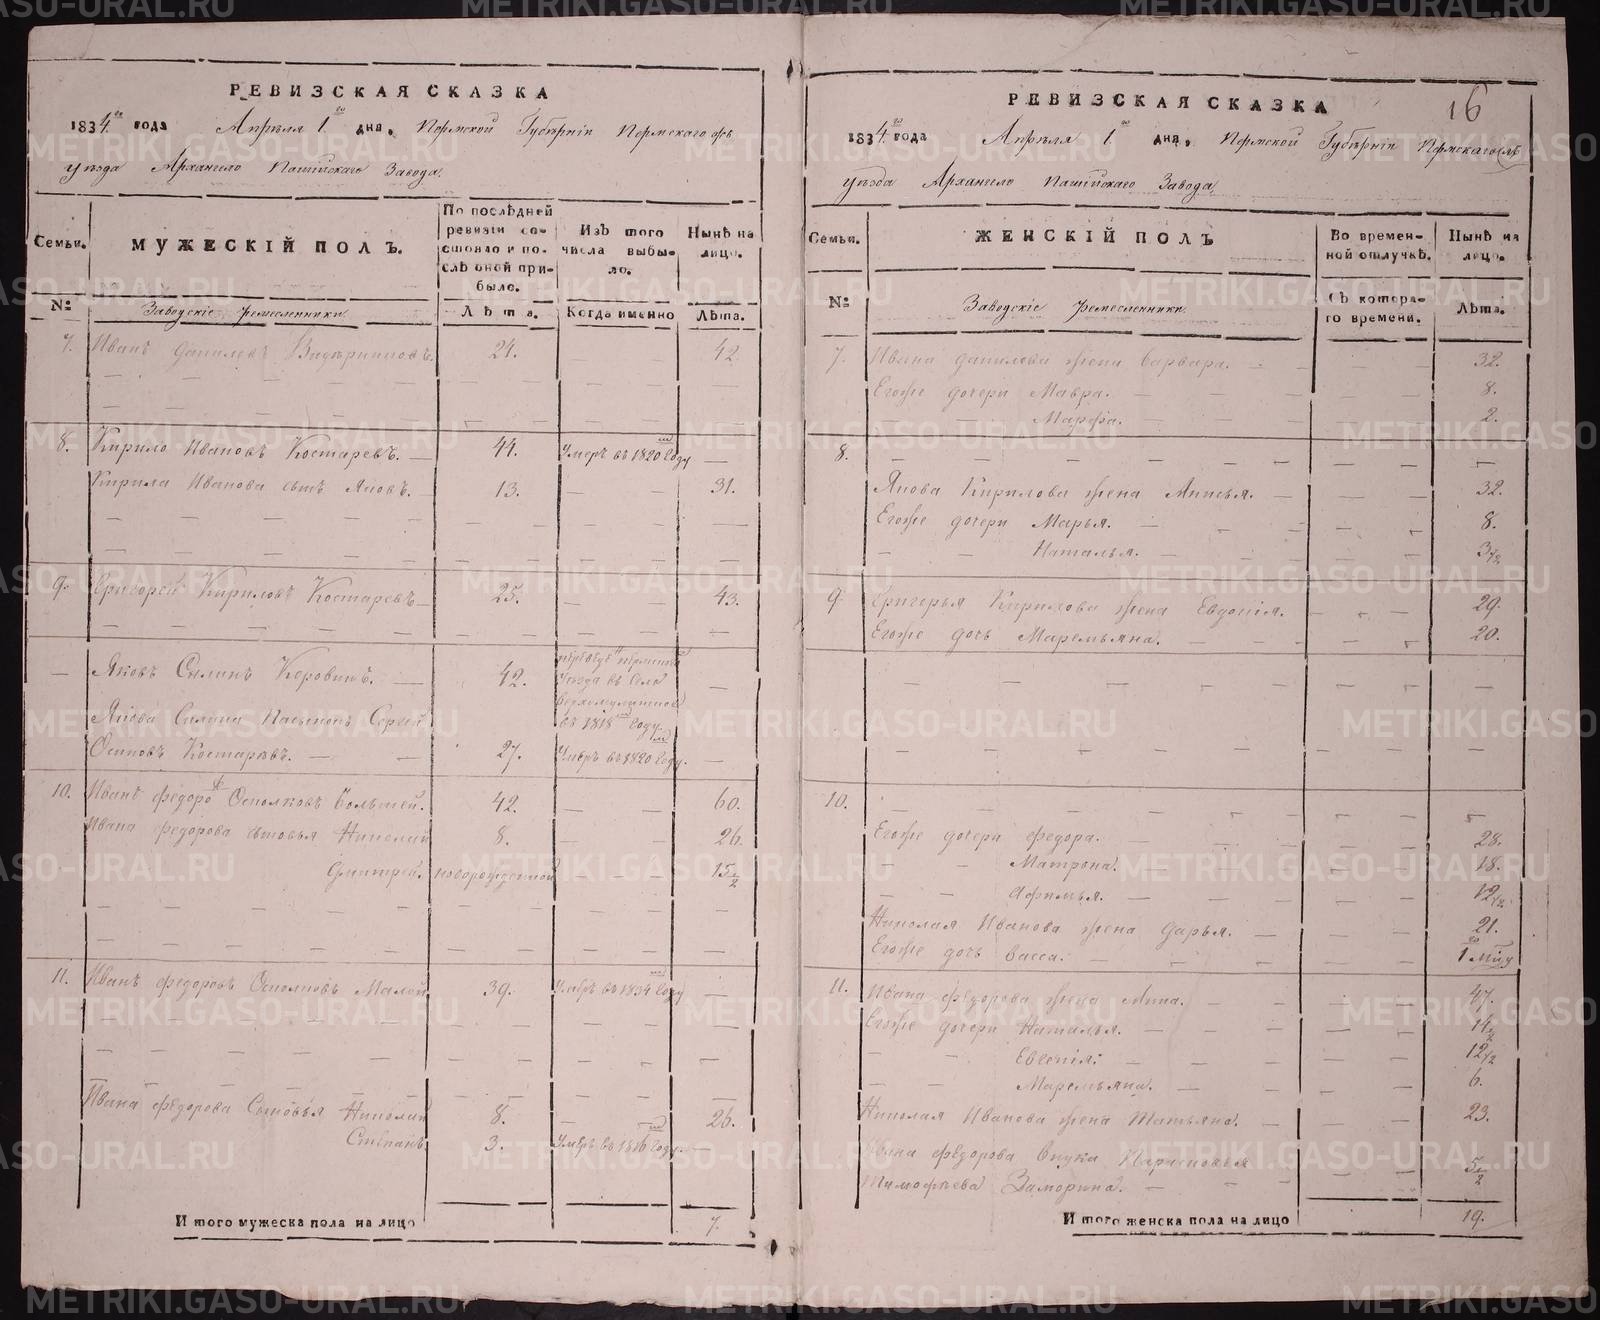 РЕВИЗСКАЯ СКАЗКА
1834.го года Апрѣля 1.го дня, Пермской Губѣрніи Пермскаго
уѣзда Архангело Пашійскаго Завода.
Семьи.
МУЖЕСКІЙ ПОЛЪ.
По послѣдней ревизіи состояло и послѣ оной прибыло.
Изъ того числа выбыло.
Нынѣ на лицо.
№
Заводскіе ремесленники
Лѣта.
Когда именно
Лѣта.
7. Иванъ Даниловъ 24. — 42.
8. Кирило Ивановъ Костаревъ. — 44. Умеръ въ 1820 году —
Кирила Иванова сынъ Яковъ. — 13. — 31.
9. Григорей Кириловъ Костаревъ — 25. — 43.
— Яковъ Силинъ Коровинъ. — 42. —
въ 1818 году.
Якова Силина Пасынокъ Сергей
Осиповъ Костаревъ. — 27. Умеръ въ 1820 году. —
10. Иванъ Федоро Осполковъ Большей. 42. — 60.
Ивана Федорова сыновья Николай 8. — 26.
Дмитрей. новорожденной — 15 1/2
11. Иванъ Федоровъ Осполковъ Малой 39. Умеръ въ 1834 году —
Ивана Федорова Сыновья Николай 8. — 26.
Степанъ. 3. Умеръ въ 1816 году. —
И того мужеска пола на лицо 7.
16
РЕВИЗСКАЯ СКАЗКА
1834.го года Апрѣля 1.го дня, Пермской Губѣрніи Пермскаго
уѣзда Архангело Пашійскаго Завода.
Семьи.
ЖЕНСКІЙ ПОЛЪ
Во временной отлучкѣ.
Нынѣ на лицо.
№
Заводскіе Ремесленники
Съ котораго времени.
Лѣта.
7. Ивана Данилова жена Варвара. — 32.
Егоже дочери Мавра. — 8.
Марфа. — 2.
8.
Якова Кирилова жена Анисья. — 32.
Егоже дочери Марья. — 8.
Наталья. — 3 1/2
9. Григорья Кирилова жена Евдокія. — 29.
Егоже дочь Маремьяна. — 20.
10.
Егоже дочери Федора. — 28.
Матрона. — 18.
Афимья. — 12 1/2
Николая Иванова жена Дарья. — 21.
Егоже дочь Васса. — 1 мцу
11. Ивана Федорова жена Анна. — 47.
Егоже дочери Наталья. — 14 1/2
Евгенія. — 12 1/2
Маремьяна. — 6.
Николая Иванова жена Татьяна. — 23.
Ивана Федорова внука Парасковья
Тимофѣева Заморина. — 5 1/2
И того женска пола на лицо 19.